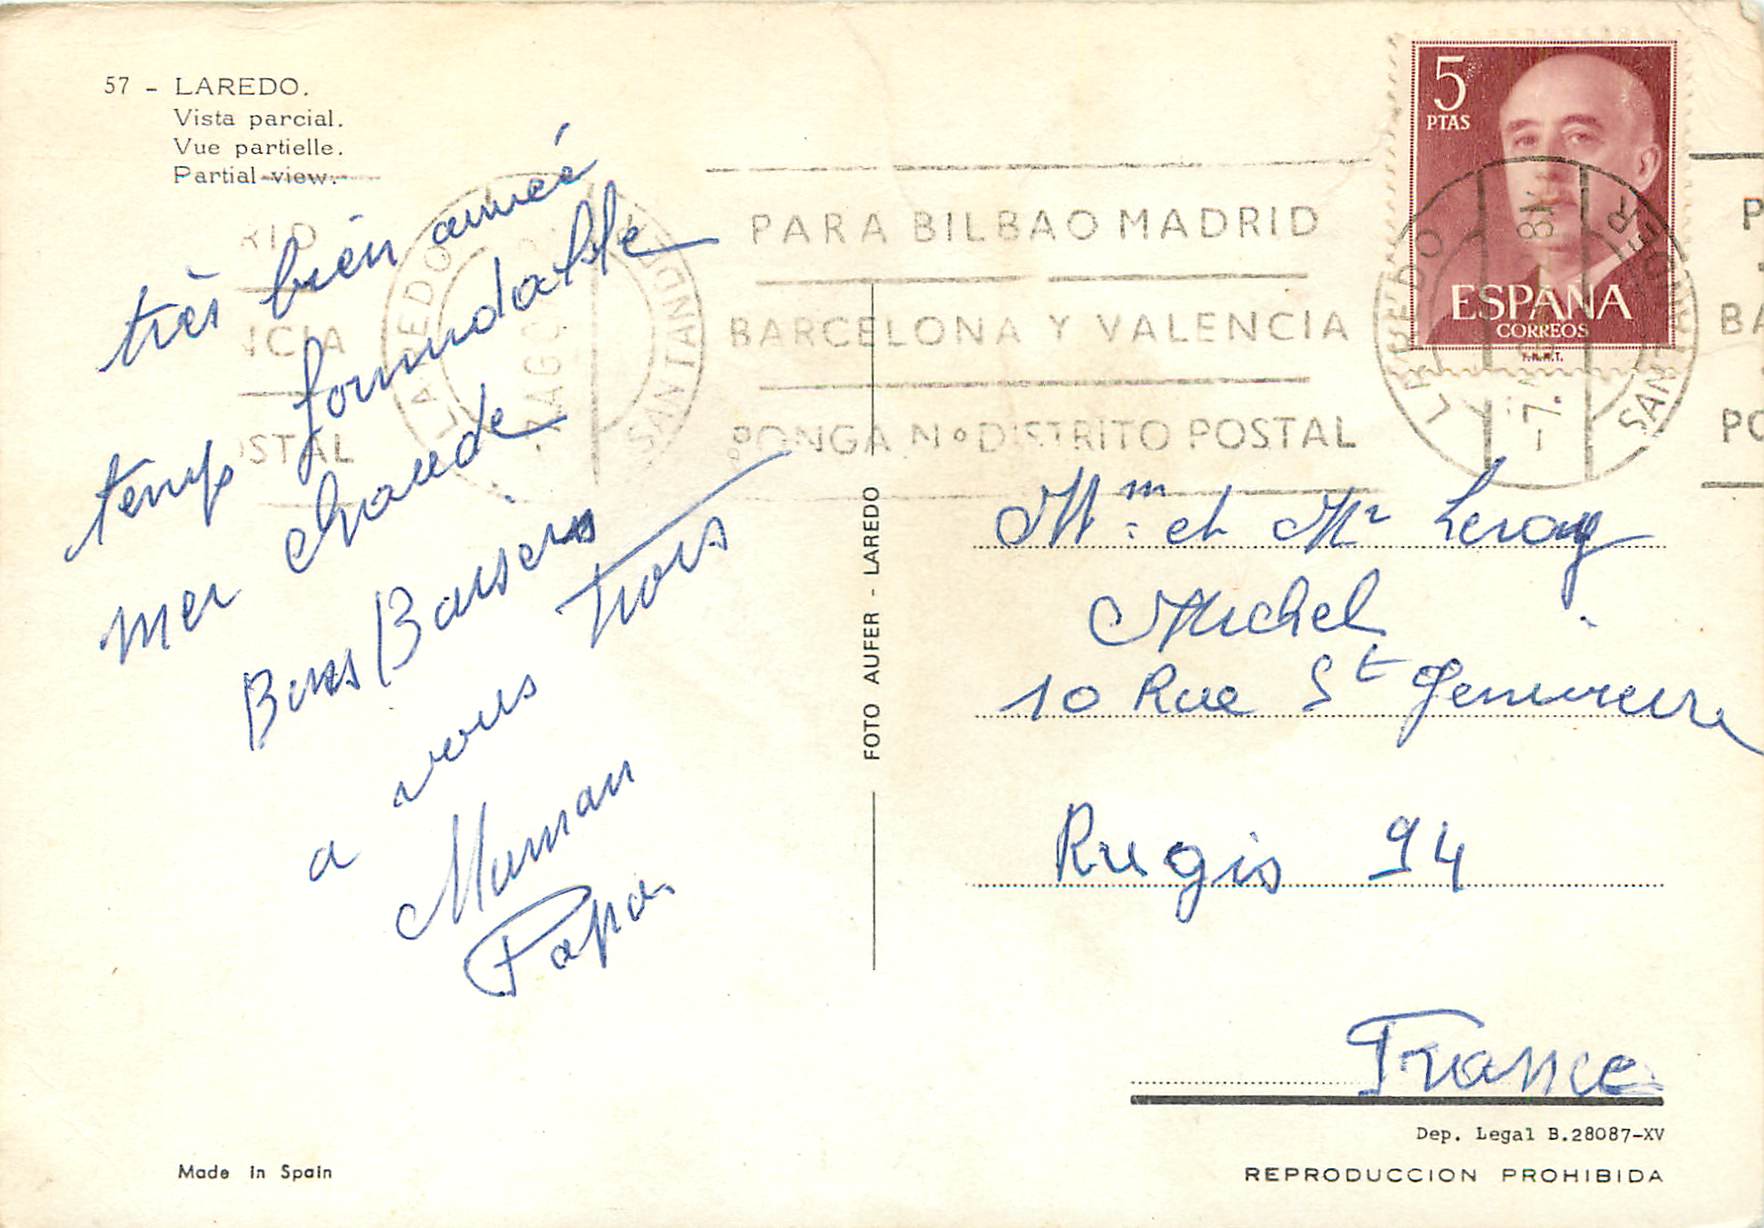 57 - LAREDO.
Vista parcial.
Vue partielle.
Partial view.
très bien
temps formidable
mer chaude
Bons Baisers
a vous trois
Maman
Papa
PARA BILBAO MADRID
BARCELONA Y VALENCIA
PONGA Nº DISTRITO POSTAL
LAREDO
SANTANDER
5
PTAS
ESPAÑA
CORREOS
F.N.M.T.
LAREDO
FOTO AUFER - LAREDO
Mm et Mr Leroy
Michel
10 Rue St
Rugis 94
France
Dep. Legal B.28087-XV
REPRODUCCION PROHIBIDA
Made in Spain